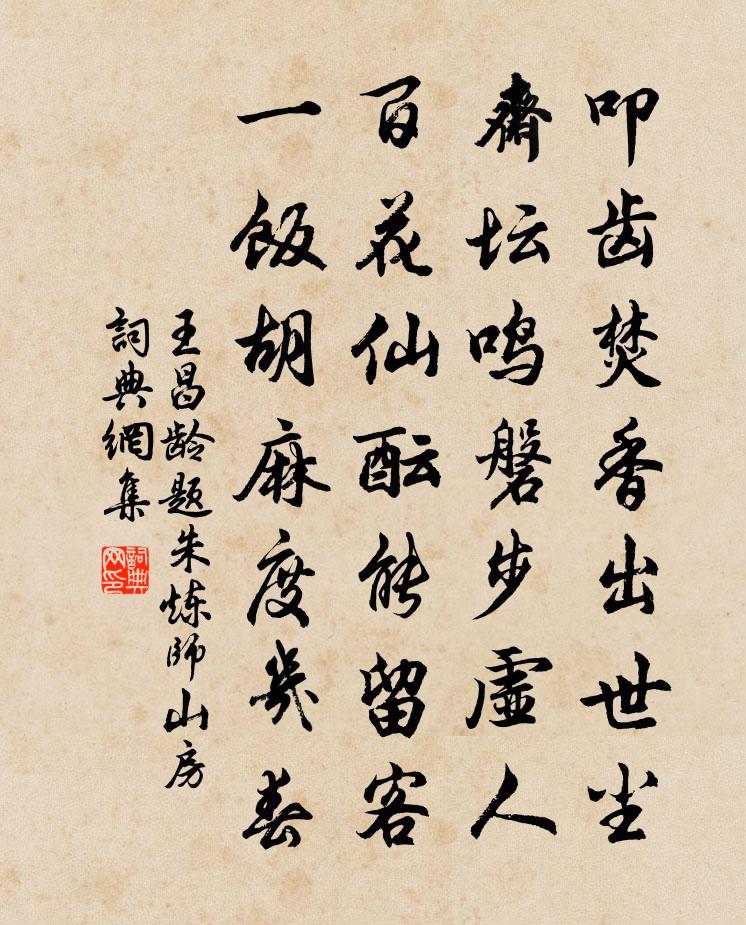 叩齿焚香出世尘
齋坛鸣磬步虚人
百花仙酝能留客
一飯胡麻度幾春
王昌龄题朱炼師山房
詞典網集
詞典网印